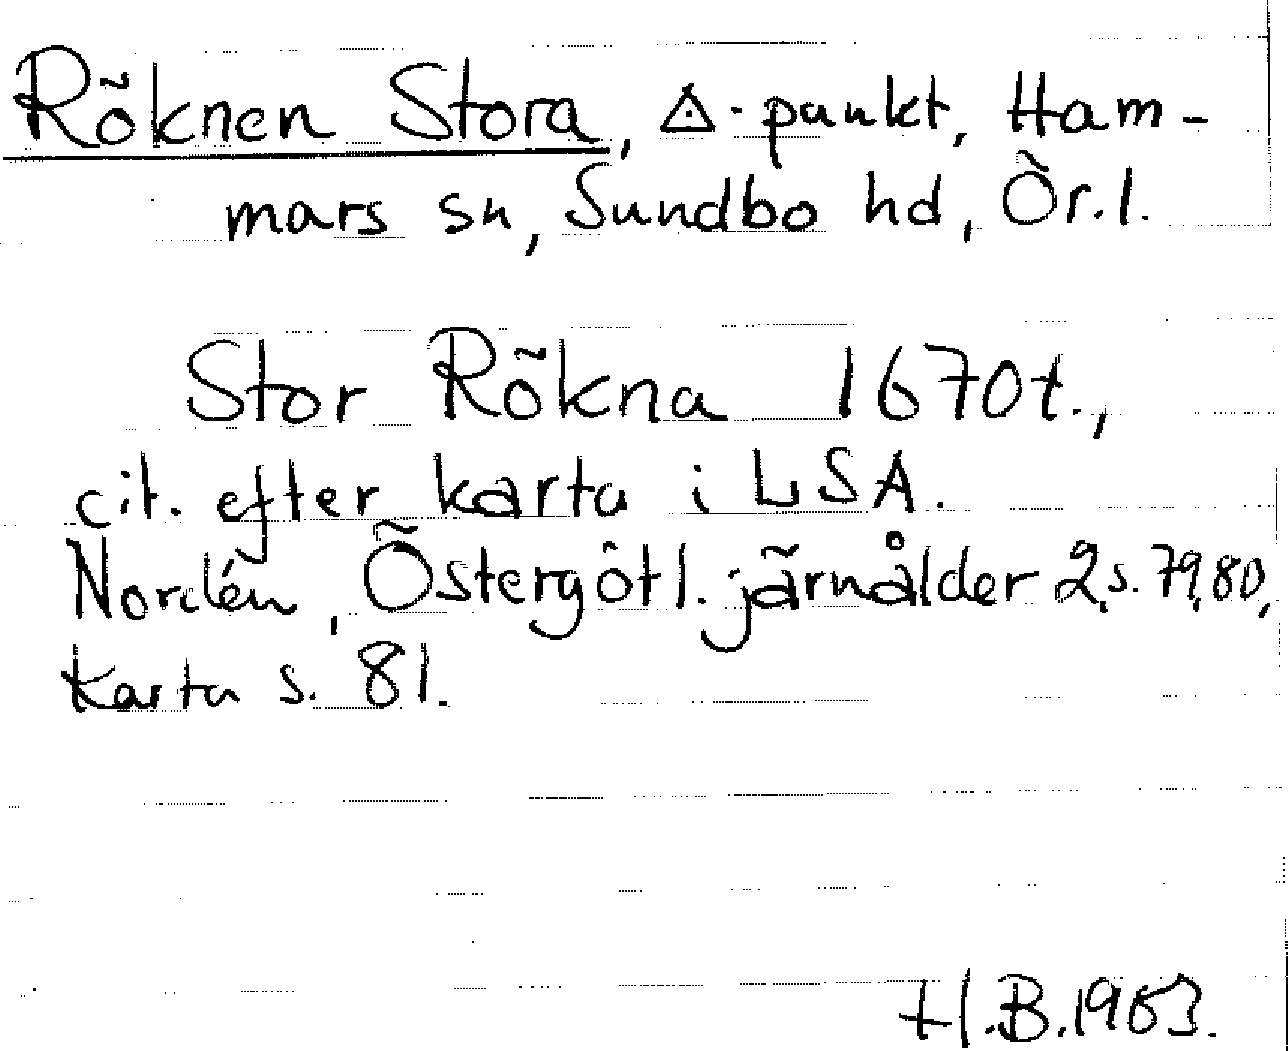 Röknen Stora, ◬-punkt, Ham-
mars sn, Sundbo hd, Ör.l.
Stor Rökna 1670t.,
cit. efter karta i LSA.
Nordén, Östergötl. järnålder 2, s. 79, 80,
karta s. 81.
H.B. 1963.